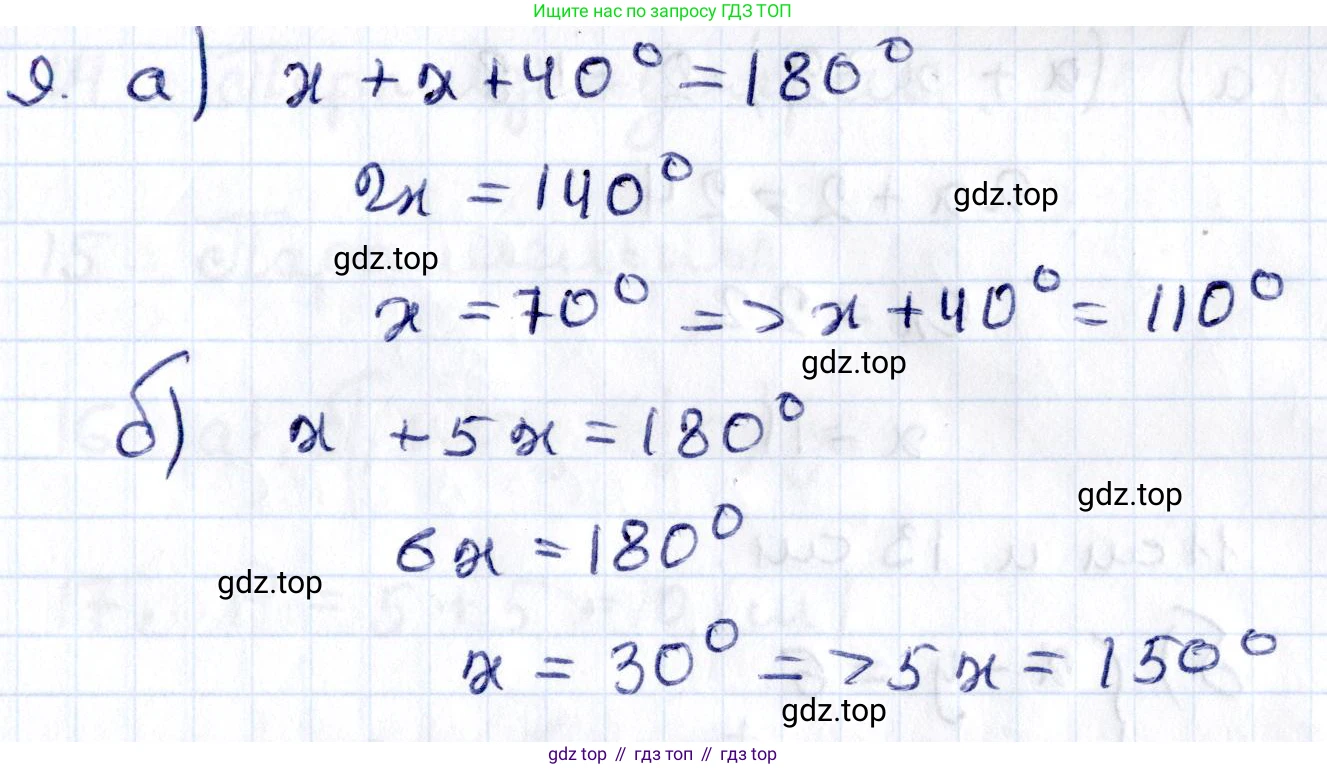 Ищите нас по запросу ГДЗ ТОП
9. а) x + x + 40° = 180°
2x = 140°
gdz.top
gdz.top
x = 70° => x + 40° = 110°
gdz.top
б) x + 5x = 180°
gdz.top
6x = 180°
gdz.top
x = 30° => 5x = 150°
gdz.top
gdz top // гдз топ // гдз top